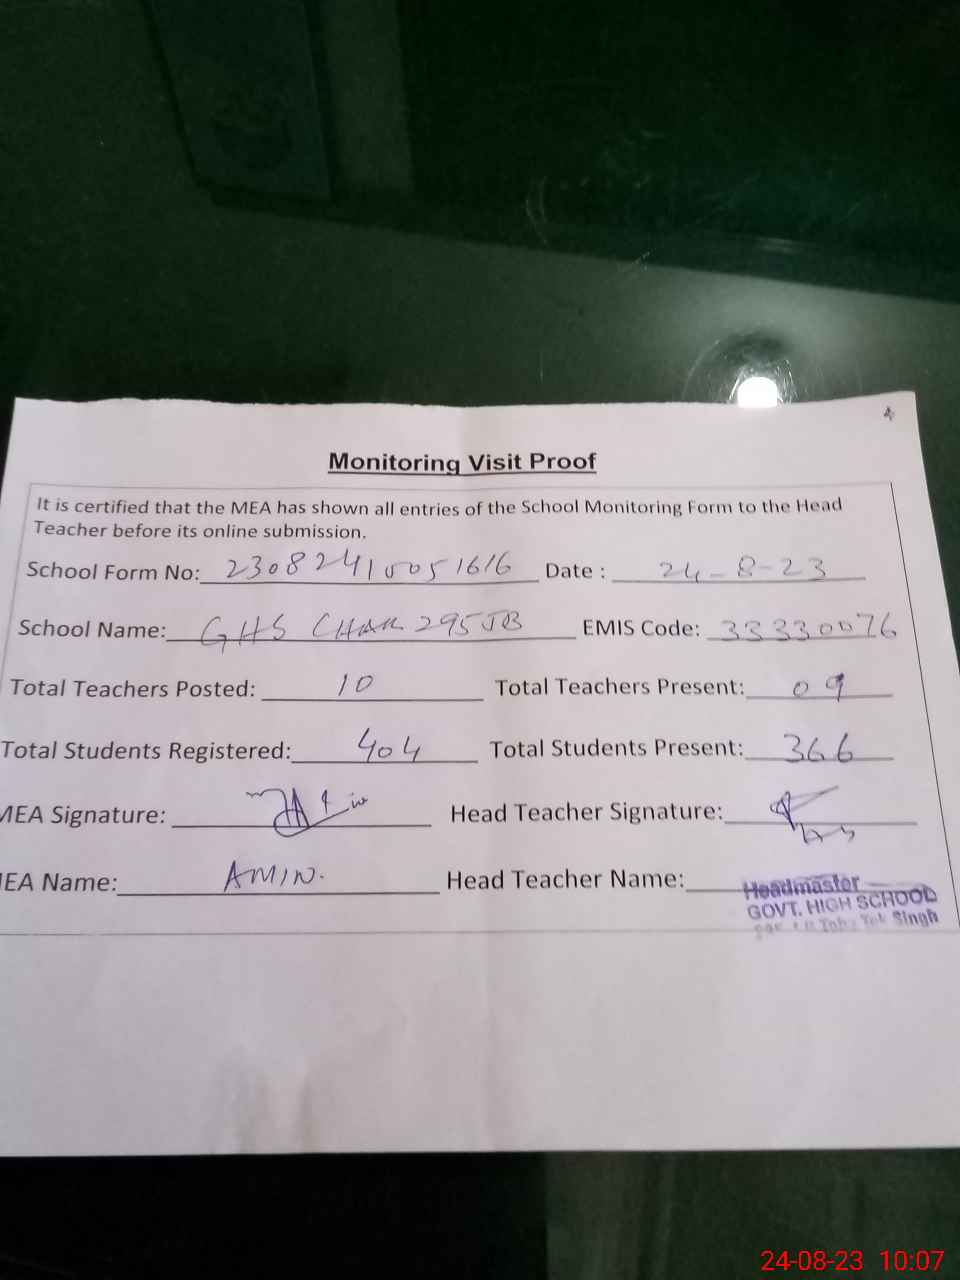 Monitoring Visit Proof
It is certified that the MEA has shown all entries of the School Monitoring Form to the Head
Teacher before its online submission.
School Form No: 23082410051616 Date : 24-8-23
School Name: GHS CHAK 295JB EMIS Code: 33330076
Total Teachers Posted: 10 Total Teachers Present: 09
Total Students Registered: 404 Total Students Present: 366
MEA Signature: Head Teacher Signature:
EA Name: AMIN. Head Teacher Name:
Headmaster
GOVT. HIGH SCHOOL
Toba Tek Singh
24-08-23 10:07